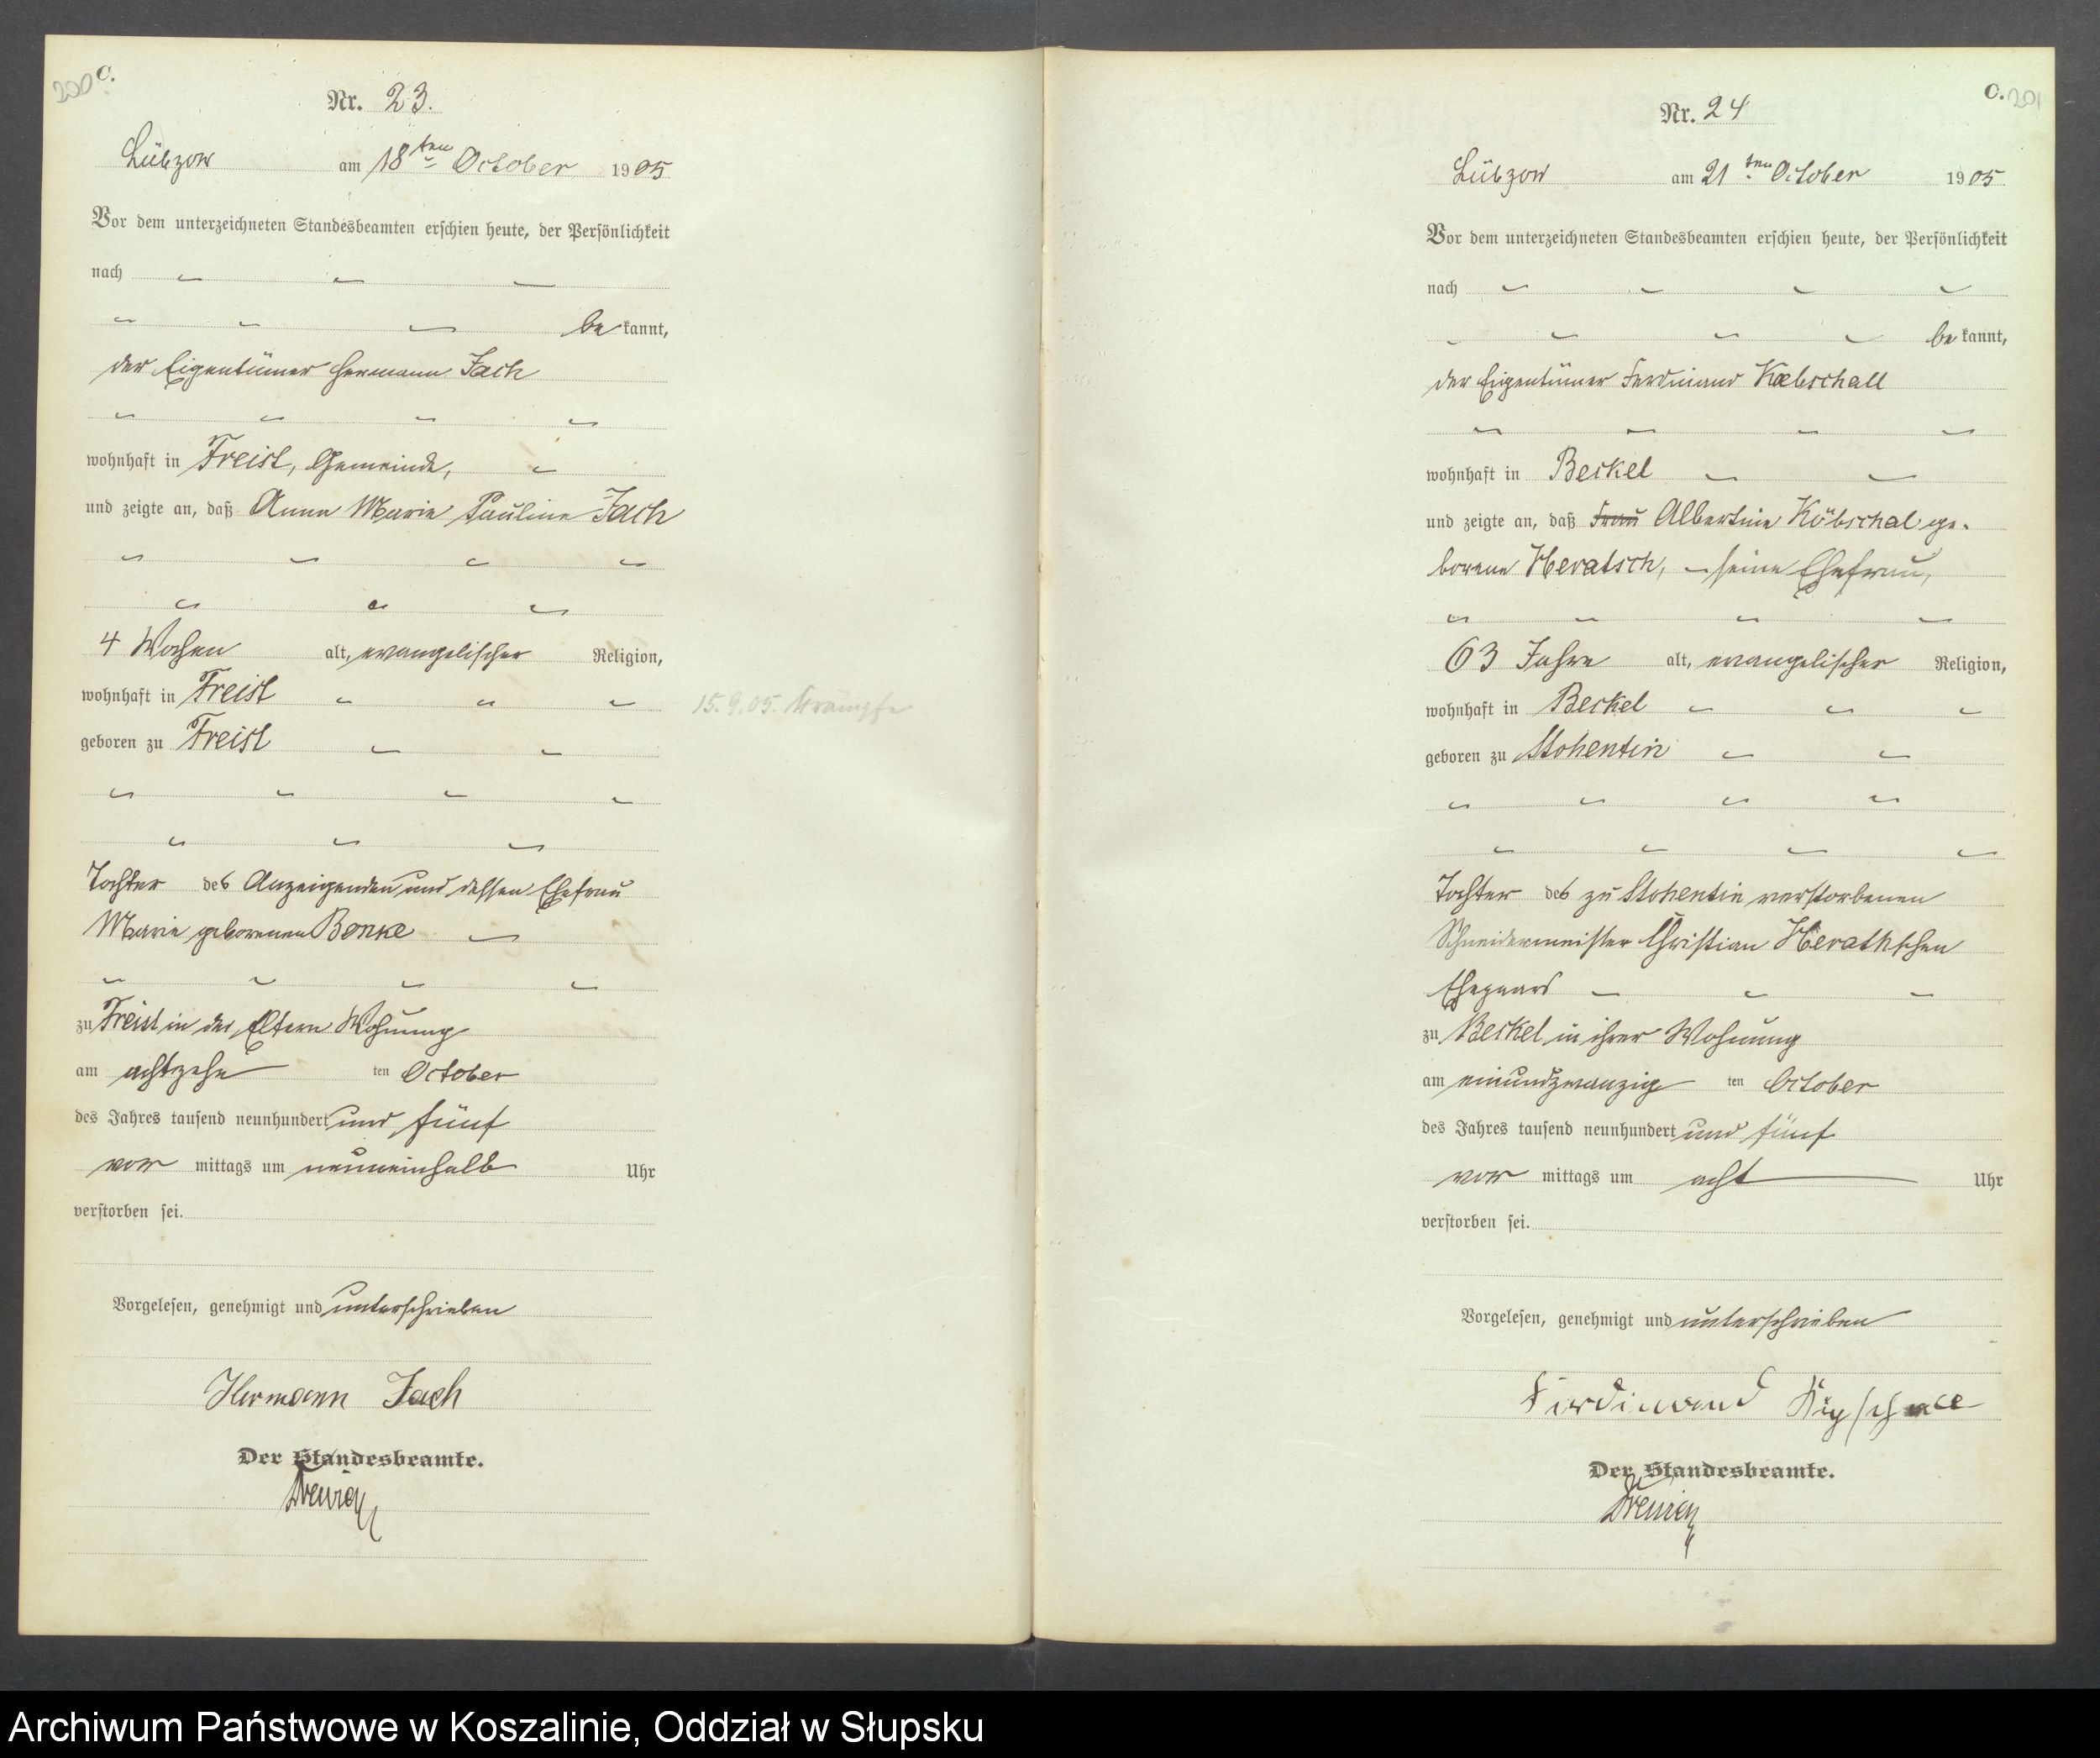 200
C.
Nr. 23.
Lübzow am 18ten October 1905
Vor dem unterzeichneten Standesbeamten erschien heute, der Persönlichkeit
nach
be kannt,
der Eigentümer Hermann Jach
wohnhaft in Freist, Gemeinde,
und zeigte an, daß Anna Marie Pauline Jach
4 Wochen alt, evangelischer Religion,
wohnhaft in Freist
15.9.05. Krämpfe
geboren zu Freist
Tochter des Anzeigenden und dessen Ehefrau
Marie geborenen Bonke
zu Freist in der Eltern Wohnung
am achtzehn ten October
des Jahres tausend neunhundert und fünf
vor mittags um neuneinhalb Uhr
verstorben sei.
Vorgelesen, genehmigt und unterschrieben
Hermann Jach
Der Standesbeamte.
C. 201
Nr. 24
Lübzow am 21ten October 1905
Vor dem unterzeichneten Standesbeamten erschien heute, der Persönlichkeit
nach
be kannt,
der Eigentümer Ferdinand Koebschall
wohnhaft in Beckel
und zeigte an, daß Frau Albertine Köbschal ge-
borene Heratsch, seine Ehefrau,
63 Jahre alt, evangelischer Religion,
wohnhaft in Beckel
geboren zu Stohentin
Tochter des zu Stohentin verstorbenen
Schneidermeister Christian Herathschen
Ehepaars
zu Beckel in ihrer Wohnung
am einundzwanzig ten October
des Jahres tausend neunhundert und fünf
vor mittags um acht Uhr
verstorben sei.
Vorgelesen, genehmigt und unterschrieben
Ferdinand
Der Standesbeamte.
Archiwum Państwowe w Koszalinie, Oddział w Słupsku